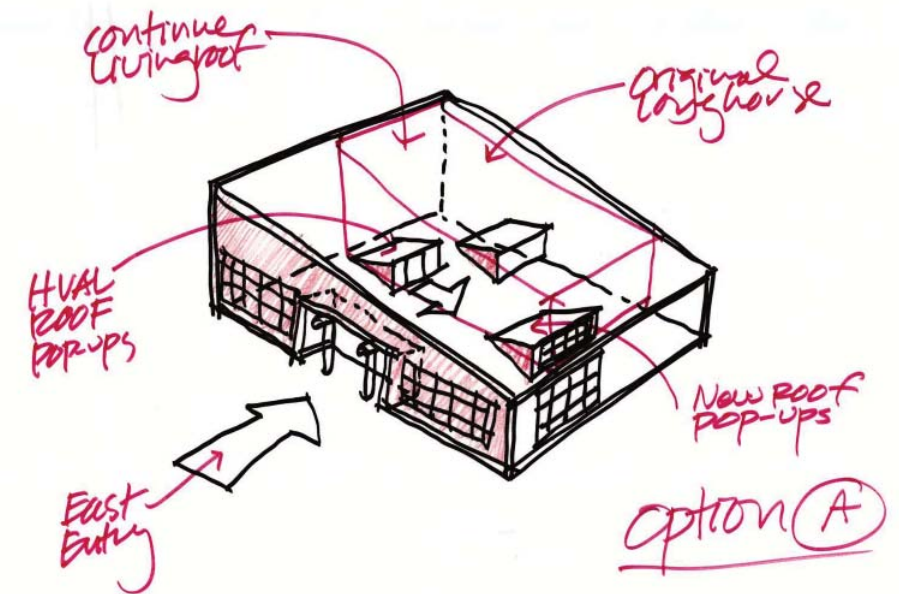 continue
Livingroof
original
longhouse
HVAC
ROOF
POP-UPS
New ROOF
POP-UPS
East
Entry
option A